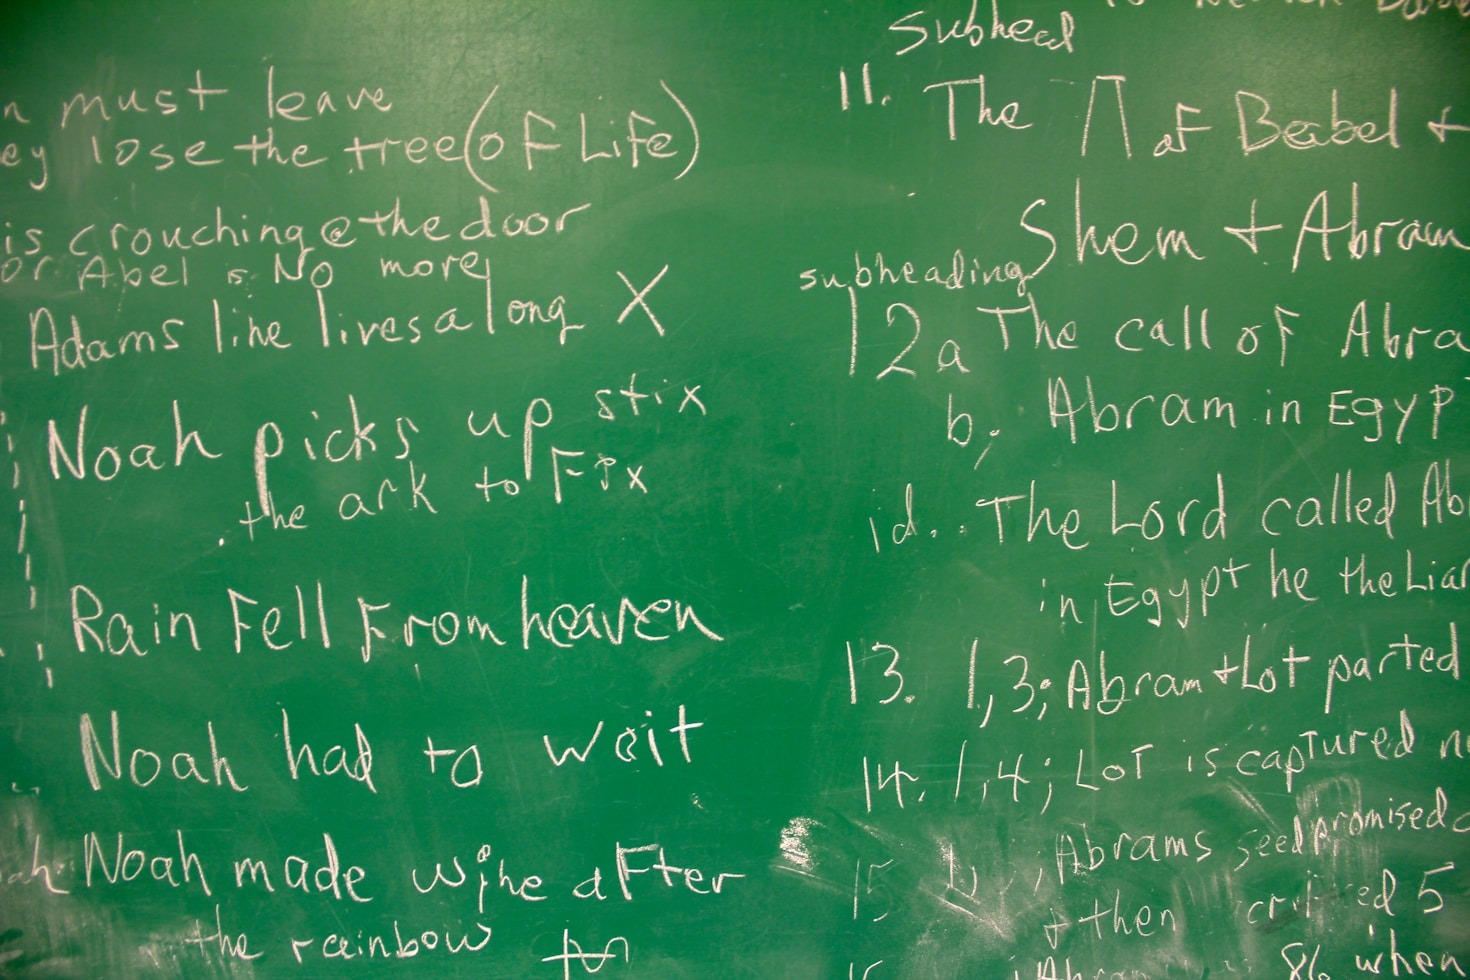 must leave
lose the tree (of Life)
is crouching @ the door
or Abel is No more
Adams line lives a long X
Noah picks up stix
the ark to Fix
Rain Fell From heaven
Noah had to wait
Noah made wine after
the rainbow
subhead
11. The Π of Babel +
Shem + Abram
subheading
12a The call of
b. Abram in
id. The Lord called
in Egypt he the
13. 1,3; Abram + Lot parted
14. 1,4; Lot is captured
15 Abrams seed promised
+ then 5
86 when